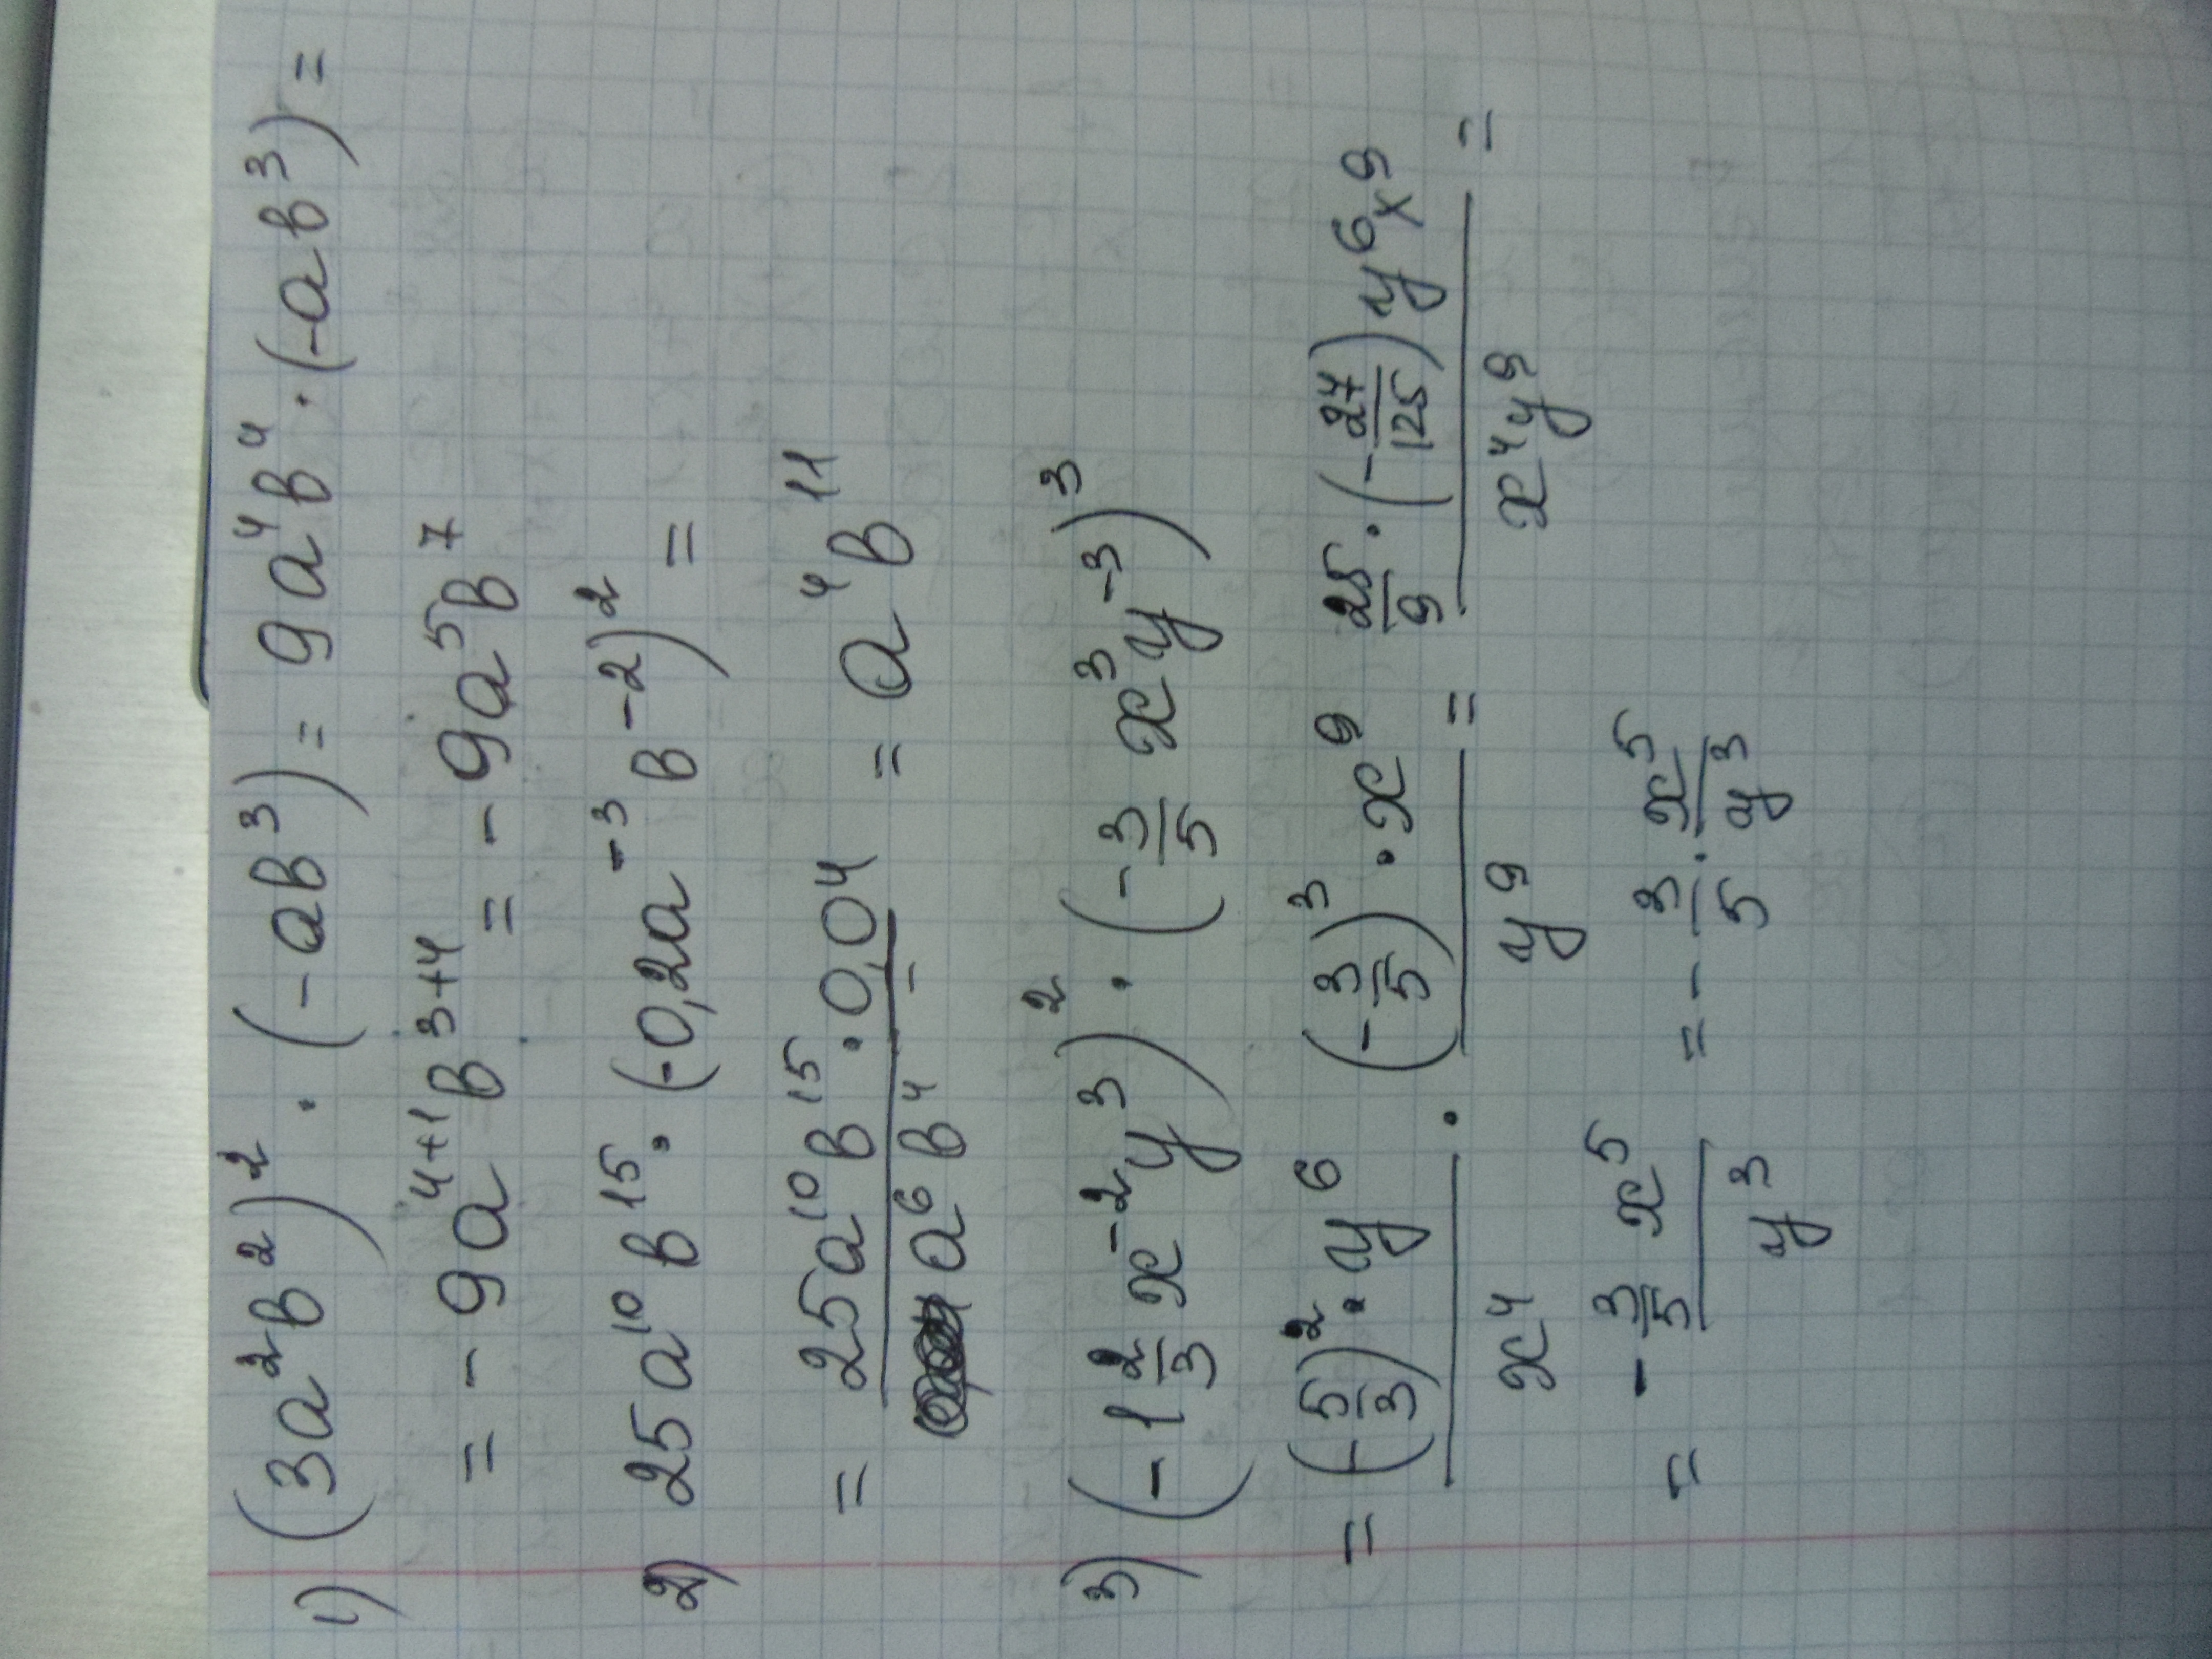 1) (3a²b²)² · (-ab³) = 9a⁴b⁴ · (-ab³) =
= -9a⁴⁺¹b³⁺⁴ = -9a⁵b⁷
2) 25a¹⁰b¹⁵ · (-0,2a⁻³b⁻²)² =
= 25a¹⁰b¹⁵ · 0,04 / a⁶b⁴ = a⁴b¹¹
3) (-1 2/3 x⁻²y³)² · (-3/5 x³y⁻³)³
= (-5/3)² · y⁶ / x⁴ · (-3/5)³ · x⁹ / y⁹ = 25/9 · (-27/125) y⁶x⁹ / x⁴y⁹ =
= -3/5 x⁵ / y³ = -3/5 · x⁵/y³